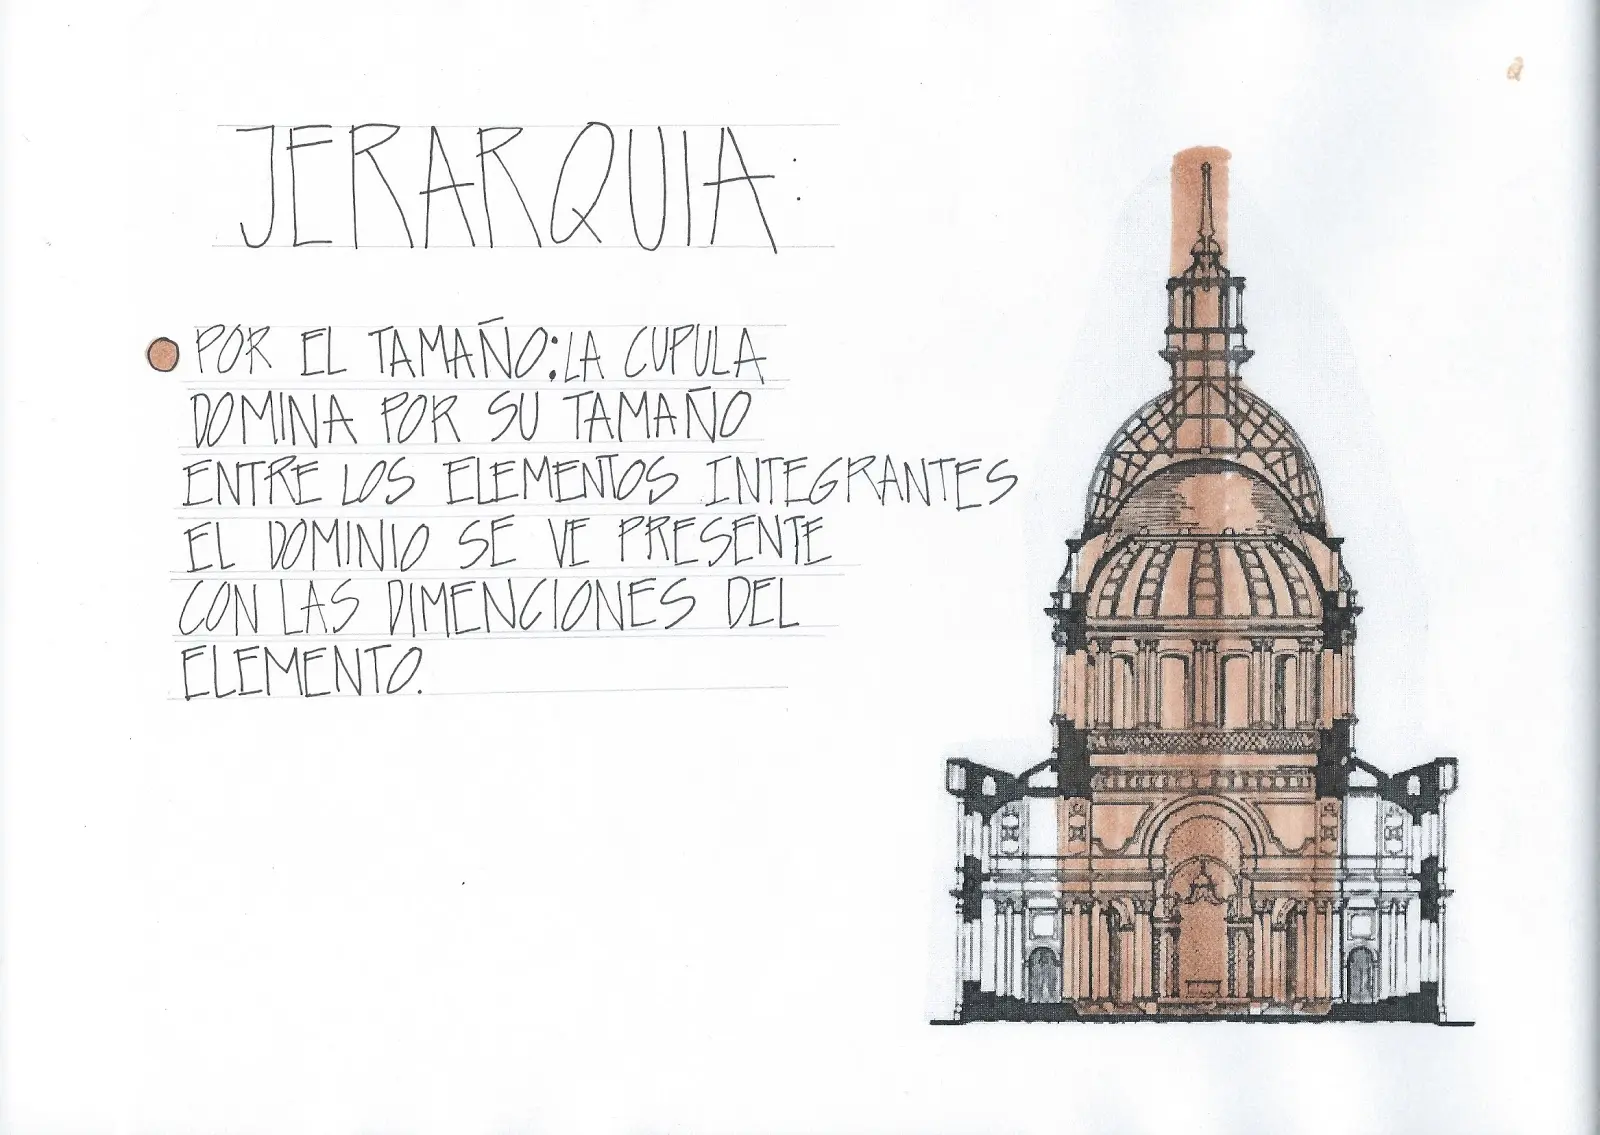 JERARQUIA:
POR EL TAMAÑO: LA CUPULA
DOMINA POR SU TAMAÑO
ENTRE LOS ELEMENTOS INTEGRANTES
EL DOMINIO SE VE PRESENTE
CON LAS DIMENCIONES DEL
ELEMENTO.